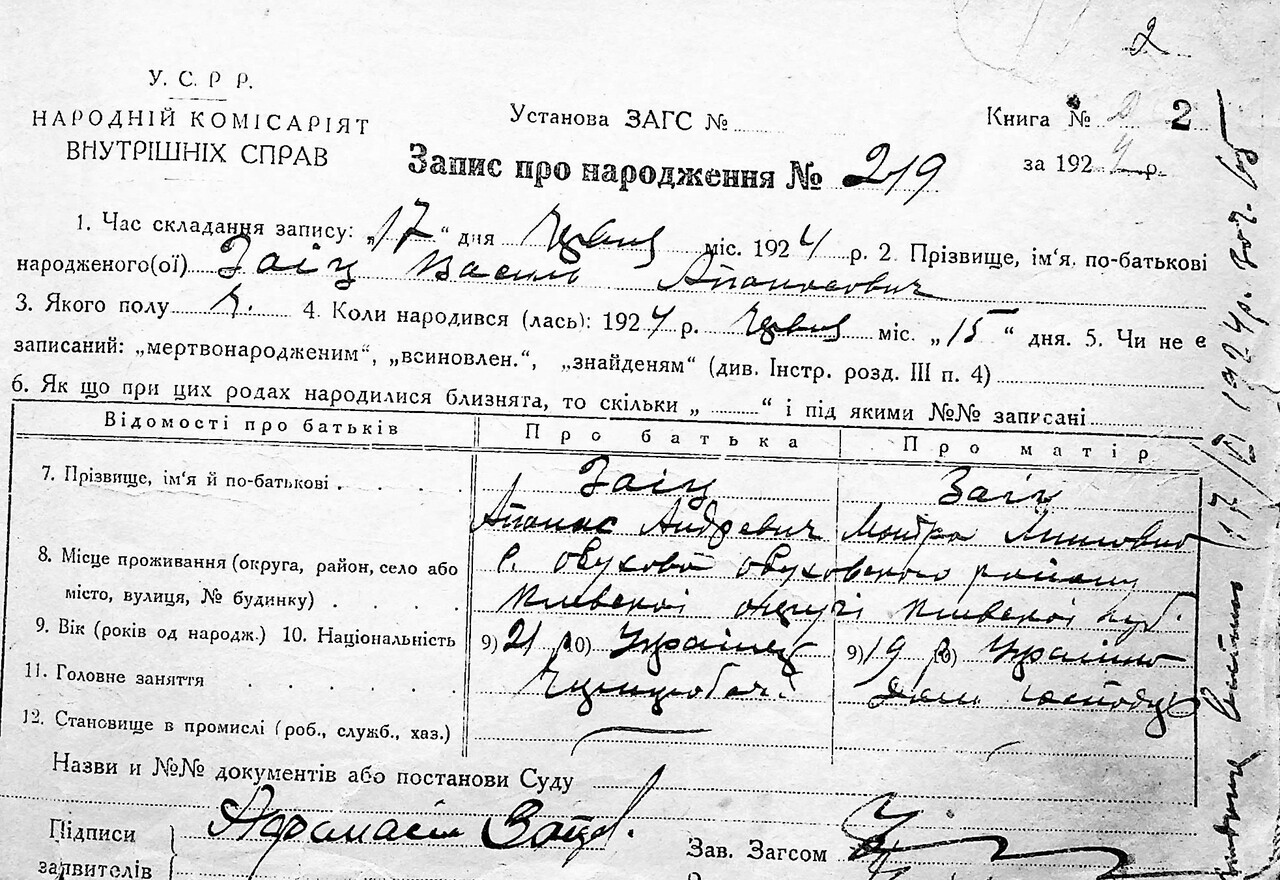 2
У. С. Р Р.
НАРОДНІЙ КОМІСАРІЯТ
ВНУТРІШНІХ СПРАВ
Установа ЗАГС №
Книга № 2 2
за 1924 р.
Запис про народження № 219
1. Час складання запису: „17“ дня червня міс. 1924 р. 2. Прізвище, ім'я, по-батькові
народженого(ої) Заіц Василь Апанасович
3. Якого полу ч. 4. Коли народився (лась): 1924 р. червня міс. „15“ дня. 5. Чи не є
записаний: „мертвонародженим“, „всиновлен.“, „знайденям“ (див. Інстр. розд. III п. 4)
6. Як що при цих родах народилися близнята, то скільки „ “ і під якими №№ записані
Відомості про батьків Про батька Про матір
7. Прізвище, ім'я й по-батькові Заіц Заіц
Апанас Андревич Мотря
8. Місце проживання (округа, район, село або с. Обухові Обуховского району
місто, вулиця, № будинку) Киевскоі округи Киевскоі губ.
9. Вік (років од народж.) 10. Національність 9) 21 р 10) Украінец 9) 19 р 10) Украінка
11. Головне заняття дом. господар
12. Становище в промислі (роб., служб., хаз.)
Назви и №№ документів або постанови Суду
Підписи
заявителів
Афанасій Заіц
Зав. Загсом
17/VI 1924 р.